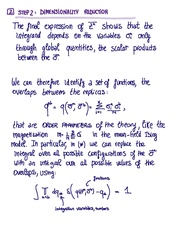 2 STEP 2: DIMENSIONALITY REDUCTION
The final expression of Z^n shows that the
integrand depends on the variables σ^a only
through global quantities, the scalar products
between the σ.
We can therefore identify a set of functions, the
overlaps between the replicas:
q^{ab} = q(σ^a, σ^b) = Σ_{i=1}^N σ_i^a σ_i^b,
that are ORDER PARAMETERS of the theory, like the
magnetisation in the mean-field Ising
model. In particular, we can replace the
integral over all possible configurations of the σ^a
with an integral over all possible values of the
overlaps, using:
functions
∫ ∏ dq_{ab} δ(q(σ^a, σ^b) - q_{ab}) = 1
integration variables, numbers